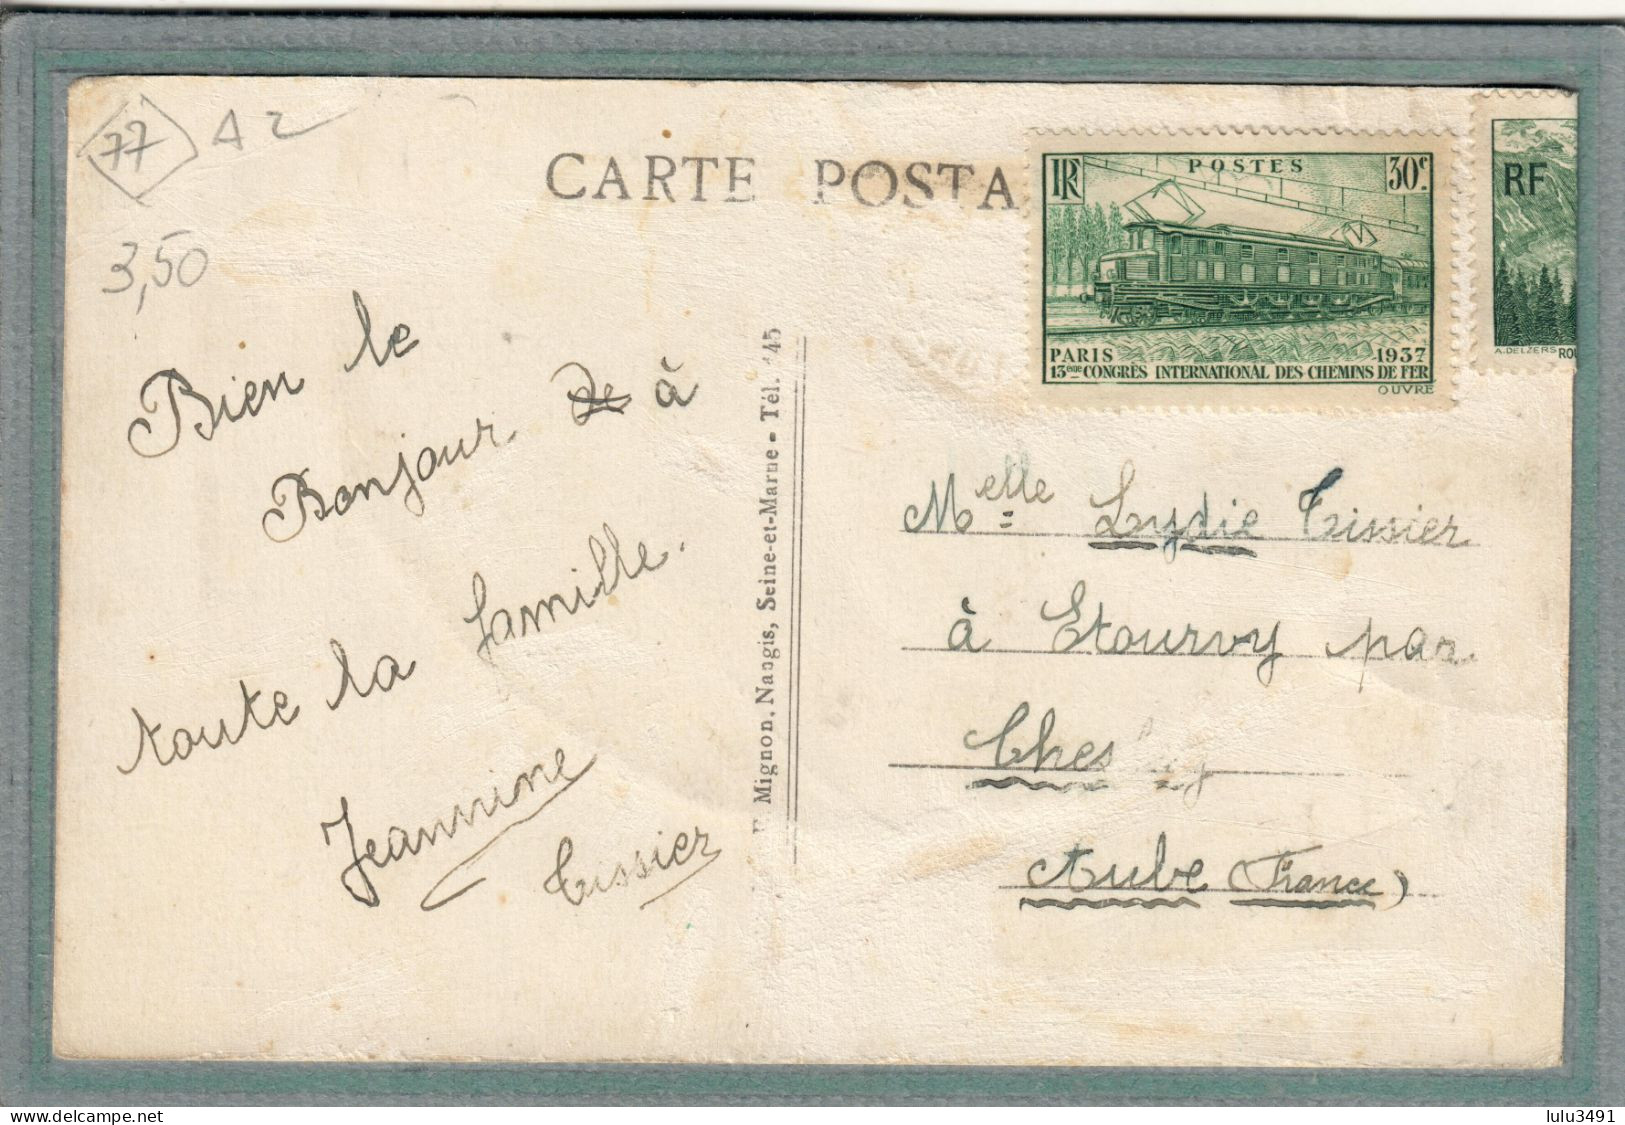 77
A2
3,50
CARTE POSTA
RF
POSTES
30c.
PARIS
1937
13ème CONGRÈS INTERNATIONAL DES CHEMINS DE FER
OUVRÉ
RF
A. DELZERS ROU
Bien le
Bonjour De à
toute la famille.
Jeannine
Tissier
Mignon, Nangis, Seine-et-Marne - Tél. 145
Melle Lydie Tissier
à Etourvy par
Chesley
Aube (France)
lulu3491